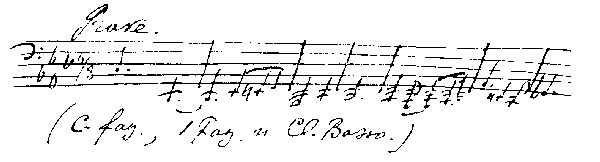 Grave.
(C. fag., 1 Fag. u Cl. Basso.)